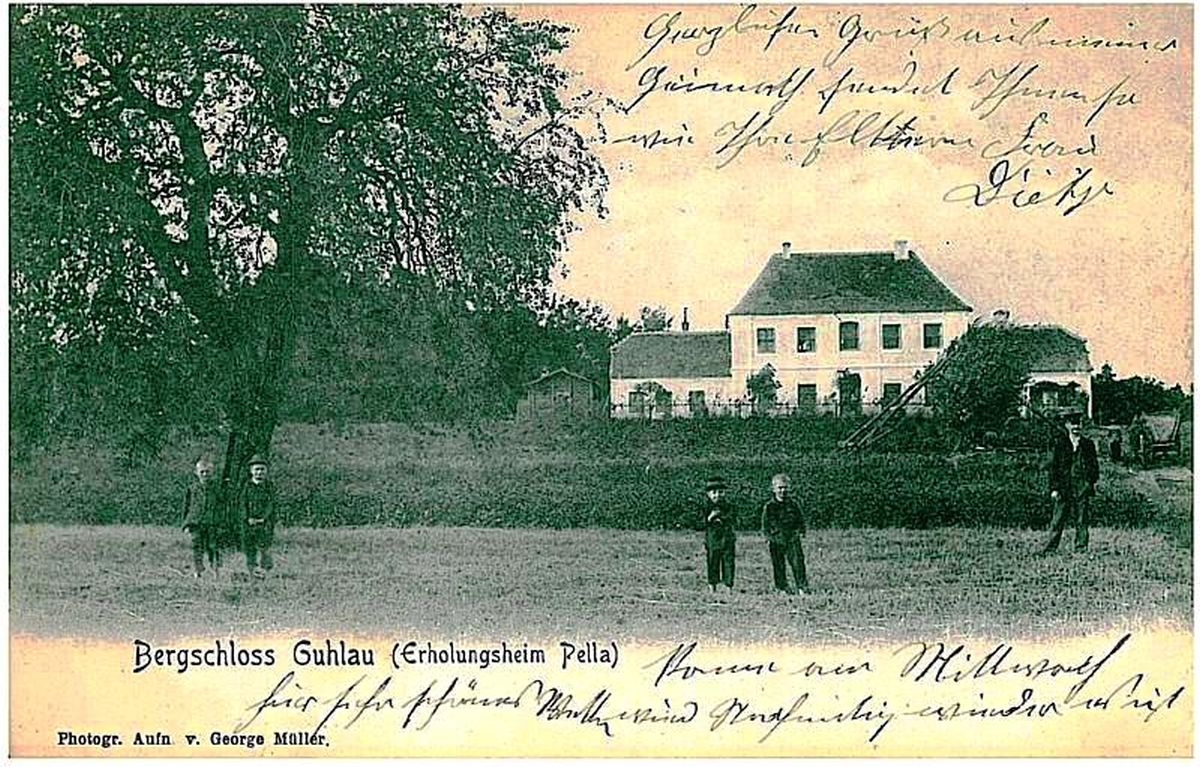 Herzlichen Gruß aus meiner
Heimath sendet Ihnen so
wie Ihre Eltern Frau
Dietze
Bergschloss Guhlau (Erholungsheim Pella)
Komme am Mittwoch
hier sehr schönes Wetter wird Nachmittag wieder es ist
Photogr. Aufn. v. George Müller.